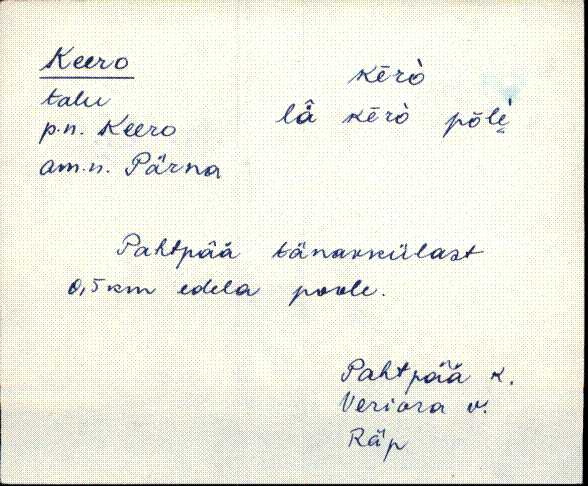 Keero
kērò
talu
p.n. Keero
lǟ kērò pōlè
am.n. Pärna
Pahtpää tänavkülast
0,5 km edela poole.
Pahtpää k.
Veriora v.
Räp